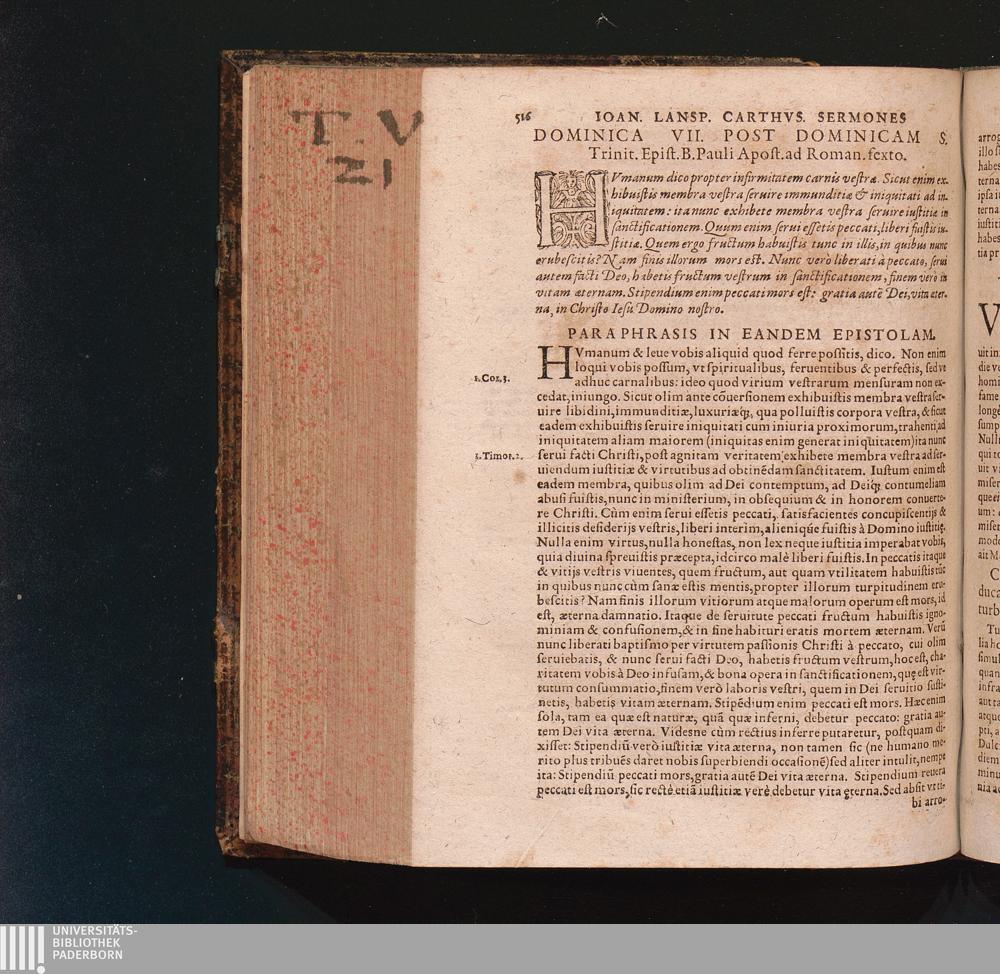 T. V
21
516 IOAN. LANSP. CARTHVS. SERMONES
DOMINICA VII. POST DOMINICAM S.
Trinit. Epiſt. B. Pauli Apoſt. ad Roman. ſexto.
HVmanum dico propter infirmitatem carnis veſtræ. Sicut enim ex-
hibuiſtis membra veſtra ſeruire immunditiæ & iniquitati ad in-
iquitatem: ita nunc exhibete membra veſtra ſeruire iuſtitiæ in
ſanctificationem. Quum enim ſerui eſſetis peccati, liberi fuiſtis iu-
ſtitiæ. Quem ergo fructum habuiſtis tunc in illis, in quibus nunc
erubeſcitis? Nam finis illorum mors eſt. Nunc verò liberati à peccato, ſerui
autem facti Deo, habetis fructum veſtrum in ſanctificationem, finem verò in
vitam æternam. Stipendium enim peccati mors eſt: gratia autē Dei, vita æter-
na, in Chriſto Ieſu Domino noſtro.
PARAPHRASIS IN EANDEM EPISTOLAM.
HVmanum & leue vobis aliquid quod ferre poſſitis, dico. Non enim
loqui vobis poſſum, vt ſpiritualibus, feruentibus & perfectis, ſed vt
1. Cor. 3. adhuc carnalibus: ideo quod virium veſtrarum menſuram non ex-
cedat, iniungo. Sicut olim ante cōuerſionem exhibuiſtis membra veſtra ſer-
uire libidini, immunditiæ, luxuriæq;, qua polluiſtis corpora veſtra, & ſicut
eadem exhibuiſtis ſeruire iniquitati cum iniuria proximorum, trahenti ad
iniquitatem aliam maiorem (iniquitas enim generat iniquitatem) ita nunc
2. Timot. 2. ſerui facti Chriſti, poſt agnitam veritatem, exhibete membra veſtra ad ſer-
uiendum iuſtitiæ & virtutibus ad obtinēdam ſanctitatem. Iuſtum enim eſt
eadem membra, quibus olim ad Dei contemptum, ad Deiq; contumeliam
abuſi fuiſtis, nunc in miniſterium, in obſequium & in honorem conuerte-
re Chriſti. Cùm enim ſerui eſſetis peccati, ſatisfacientes concupiſcentijs &
illicitis deſiderijs veſtris, liberi interim, alieniq́ue fuiſtis à Domino iuſtitię.
Nulla enim virtus, nulla honeſtas, non lex neque iuſtitia imperabat vobis,
quia diuina ſpreuiſtis præcepta, idcirco malè liberi fuiſtis. In peccatis itaque
& vitijs veſtris viuentes, quem fructum, aut quam vtilitatem habuiſtis tūc
in quibus nunc cùm ſanæ eſtis mentis, propter illorum turpitudinem eru-
beſcitis? Nam finis illorum vitiorum atque malorum operum eſt mors, id
eſt, æterna damnatio. Itaque de ſeruitute peccati fructum habuiſtis igno-
miniam & confuſionem, & in fine habituri eratis mortem æternam. Verū
nunc liberati baptiſmo per virtutem paſſionis Chriſti à peccato, cui olim
ſeruiebatis, & nunc ſerui facti Deo, habetis fructum veſtrum, hoc eſt, cha-
ritatem vobis à Deo infuſam, & bona opera in ſanctificationem, quę eſt vir-
tutum conſummatio, finem verò laboris veſtri, quem in Dei ſeruitio ſuſti-
netis, habetis vitam æternam. Stipēdium enim peccati eſt mors. Hæc enim
ſola, tam ea quæ eſt naturæ, quā quæ inferni, debetur peccato: gratia au-
tem Dei vita æterna. Videsne cùm rectius inferre putaretur, poſtquam di-
xiſſet: Stipendiū verò iuſtitiæ vita æterna, non tamen ſic (ne humano me-
rito plus tribuēs daret nobis ſuperbiendi occaſionē) ſed aliter intulit, nempe
ita: Stipendiū peccati mors, gratia autē Dei vita æterna. Stipendium reuera
peccati eſt mors, ſic rectè etiā iuſtitiæ verè debetur vita ęterna. Sed abſit vt ti-
bi arro-
UNIVERSITÄTS-
BIBLIOTHEK
PADERBORN